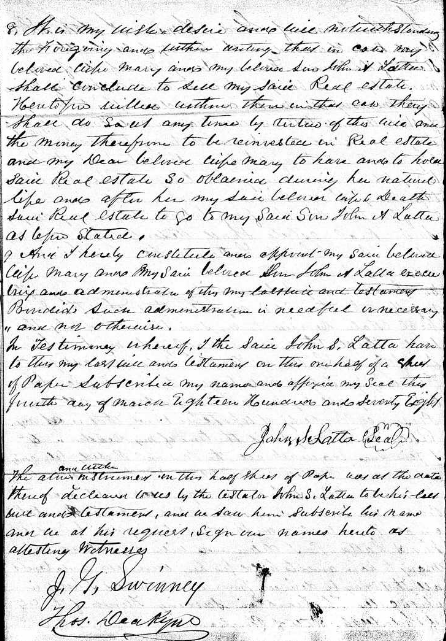 8 It is my wish & desire and will notwithstanding
the foregoing and within writing that in case my
beloved wife Mary and my beloved Son John A Latta
shall conclude to sell my said Real estate
Heretofore willed within them in that case they
shall do so at any time by virtue of this will and
the money therefrom to be reinvested in Real estate
and my Dear beloved wife Mary to have and to hold
said Real estate so obtained during her natural
life and after her my said beloved wife's Death
said Real estate to go to my said Son John A Latta
as before stated.
9 And I hereby constitute and appoint my said beloved
wife Mary and my said beloved Son John A Latta
and administrator of this my last will and testament
Provided such administration is needful or necessary
and not otherwise.
In Testimony whereof, I the said John S. Latta have
to this my last will and testament on this one half of a sheet
of Paper subscribed my name and affixed my Seal this
fourth day of March Eighteen Hundred and Seventy Eight
John S. Latta Seal
and within
The above instrument in this half sheet of Paper was at the date
thereof declared to us by the testator John S. Latta to be his last
will and testament, and we saw him subscribe his name
and we at his request, Sign our names hereto as
attesting Witnesses
J. G. Swinney
Thos. Deakyne